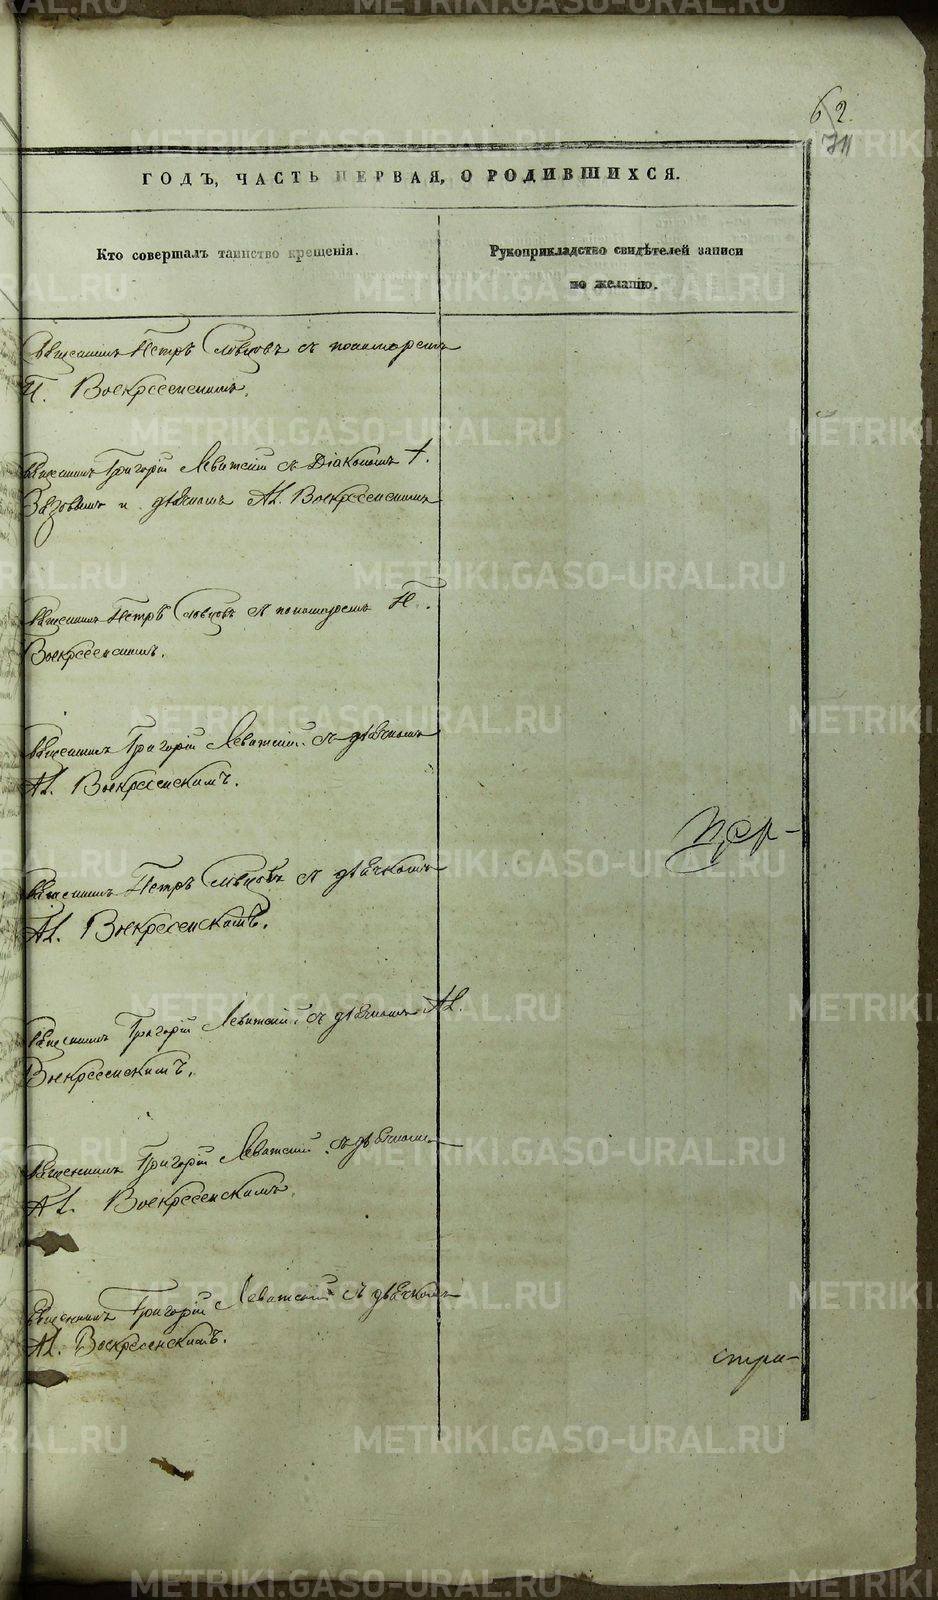 62
711
ГОДЪ, ЧАСТЬ ПЕРВАЯ, О РОДИВШИХСЯ.
Кто совершалъ таинство крещенія.
Рукоприкладство свидѣтелей записи
по желанію.
Священникъ Петръ Словцовъ съ пономаремъ
Воскресенскимъ.
Священникъ Григорій Левитскій съ Діакономъ
и дьячкомъ Ал. Воскресенскимъ
Священникъ Петръ Словцовъ съ пономаремъ
Воскресенскимъ.
Священникъ Григорій Левитскій съ дьячкомъ
Ал. Воскресенскимъ.
Священникъ Петръ Словцовъ съ дьячкомъ
Ал. Воскресенскимъ.
Священникъ Григорій Левитскій съ дьячкомъ Ал.
Воскресенскимъ.
Священникъ Григорій Левитскій съ дьячкомъ
Ал. Воскресенскимъ.
Священникъ Григорій Левитскій съ дьячкомъ
Ал. Воскресенскимъ.
METRIKI.GASO-URAL.RU